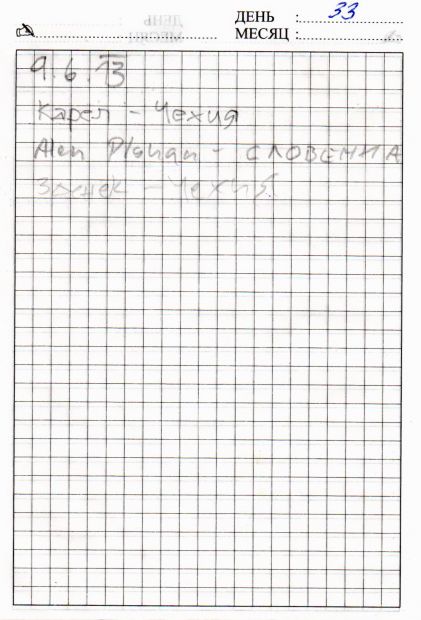 ДЕНЬ : 33
МЕСЯЦ :
9.6.13
Карел - Чехия
Alen - СЛОВЕНИА
Зденек - Чехия